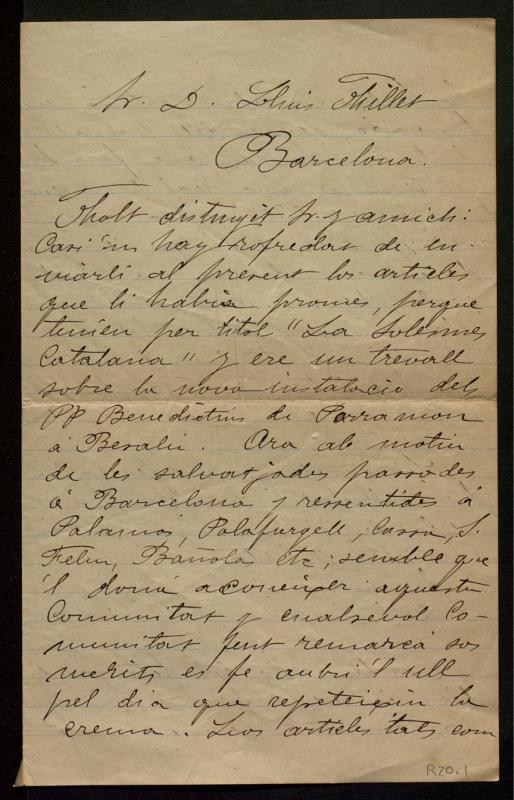 Sr. D. Lluis Millet
Barcelona.
Molt distingit Sr. y amich:
Casi 'm hay refredat de en-
viarli al present los articles
que li había promes, perque
tenien per titol "La Solesmes
Catalana" y ere un trevall
sobre la nova instalacio dels
PP Benedictins de Parramon
á Besalú. Ara ab motiu
de les salvatjades passades
á Barcelona y ressentides á
Palamós, Palafurgell, Cassá, S.
Feliu, Bañolas etc; semble que
'l doná a coneixer aquesta
Comunitat y cualsevol Co-
munitat fent remarcá sos
merits es fe aubri 'l ull
pel dia que repeteixin la
crema. Los articles tals com
R20.1